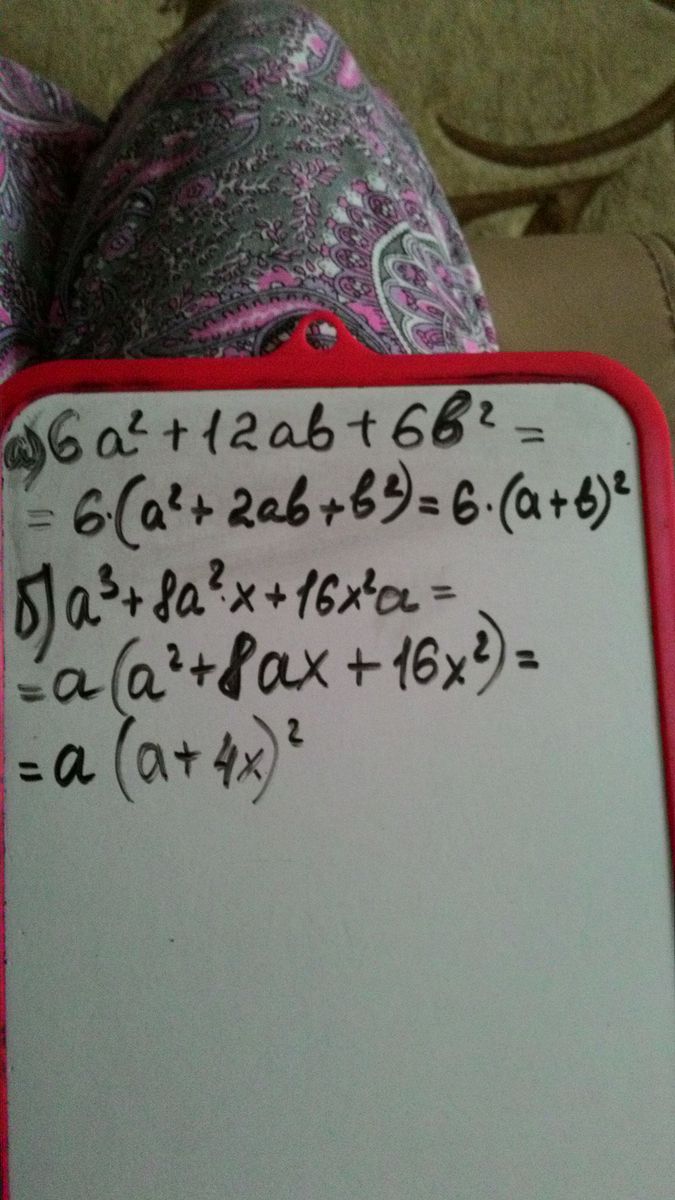 а) 6a² + 12ab + 6b² =
= 6·(a² + 2ab + b²) = 6·(a + b)²
б) a³ + 8a²·x + 16x²a =
= a (a² + 8ax + 16x²) =
= a (a + 4x)²